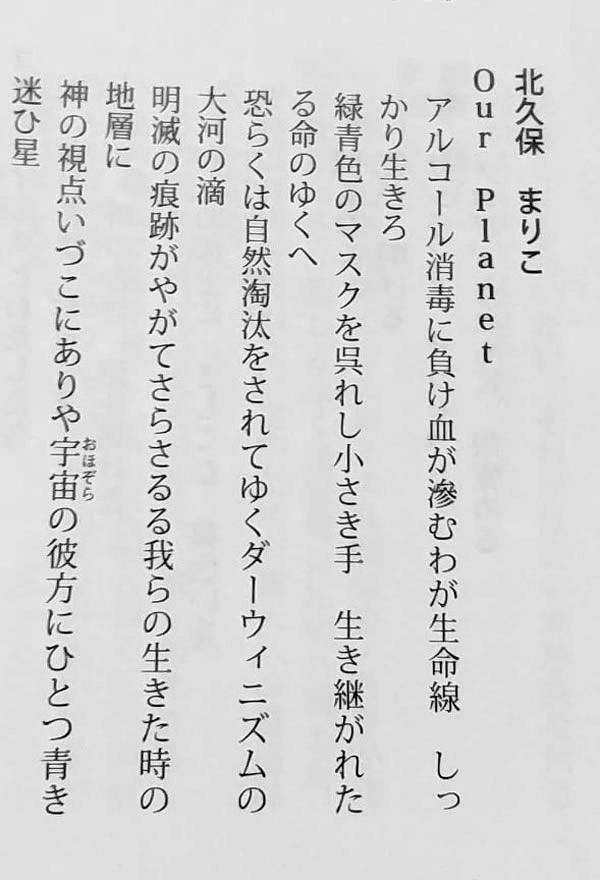 北久保　まりこ
Our Planet
アルコール消毒に負け血が滲むわが生命線　しっ
かり生きろ
緑青色のマスクを呉れし小さき手　生き継がれた
る命のゆくへ
恐らくは自然淘汰をされてゆくダーウィニズムの
大河の滴
明滅の痕跡がやがてさらさるる我らの生きた時の
地層に
神の視点いづこにありや宇宙の彼方にひとつ青き
おほぞら
迷ひ星